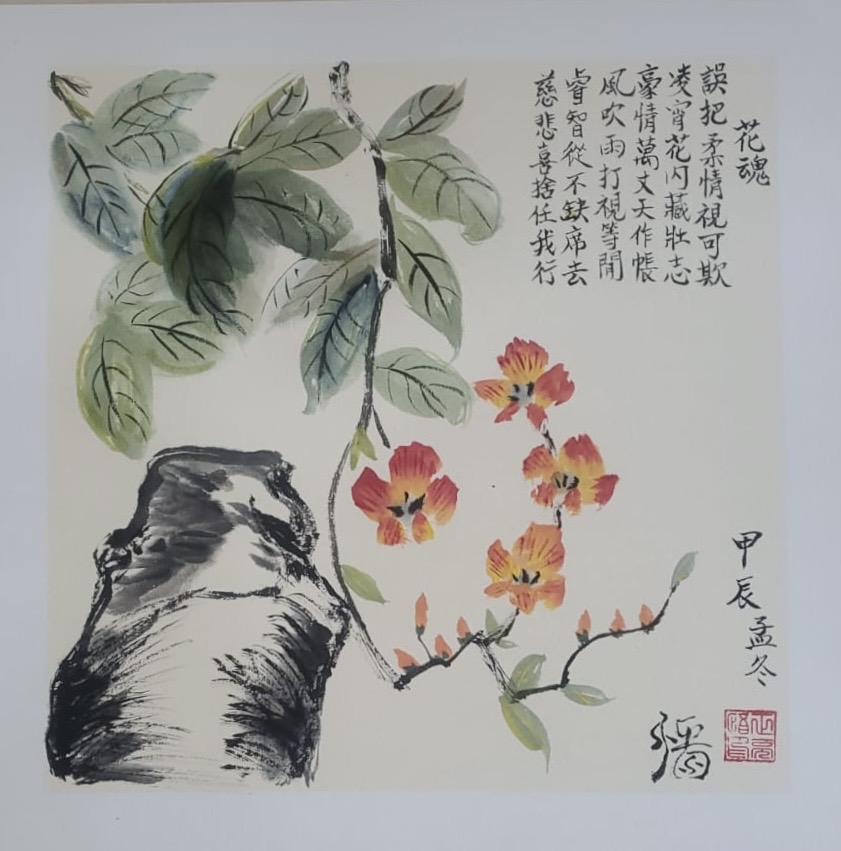 花魂
誤把柔情視可欺
凌宵花闪藏壯志
豪情萬丈天作帳
風吹雨打視等閒
睿智從不缺席去
慈悲喜捨任我行
甲辰孟冬